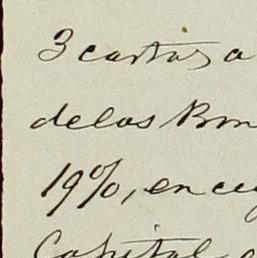 3 cartas a
de los Bon
19%, en cu
Capital